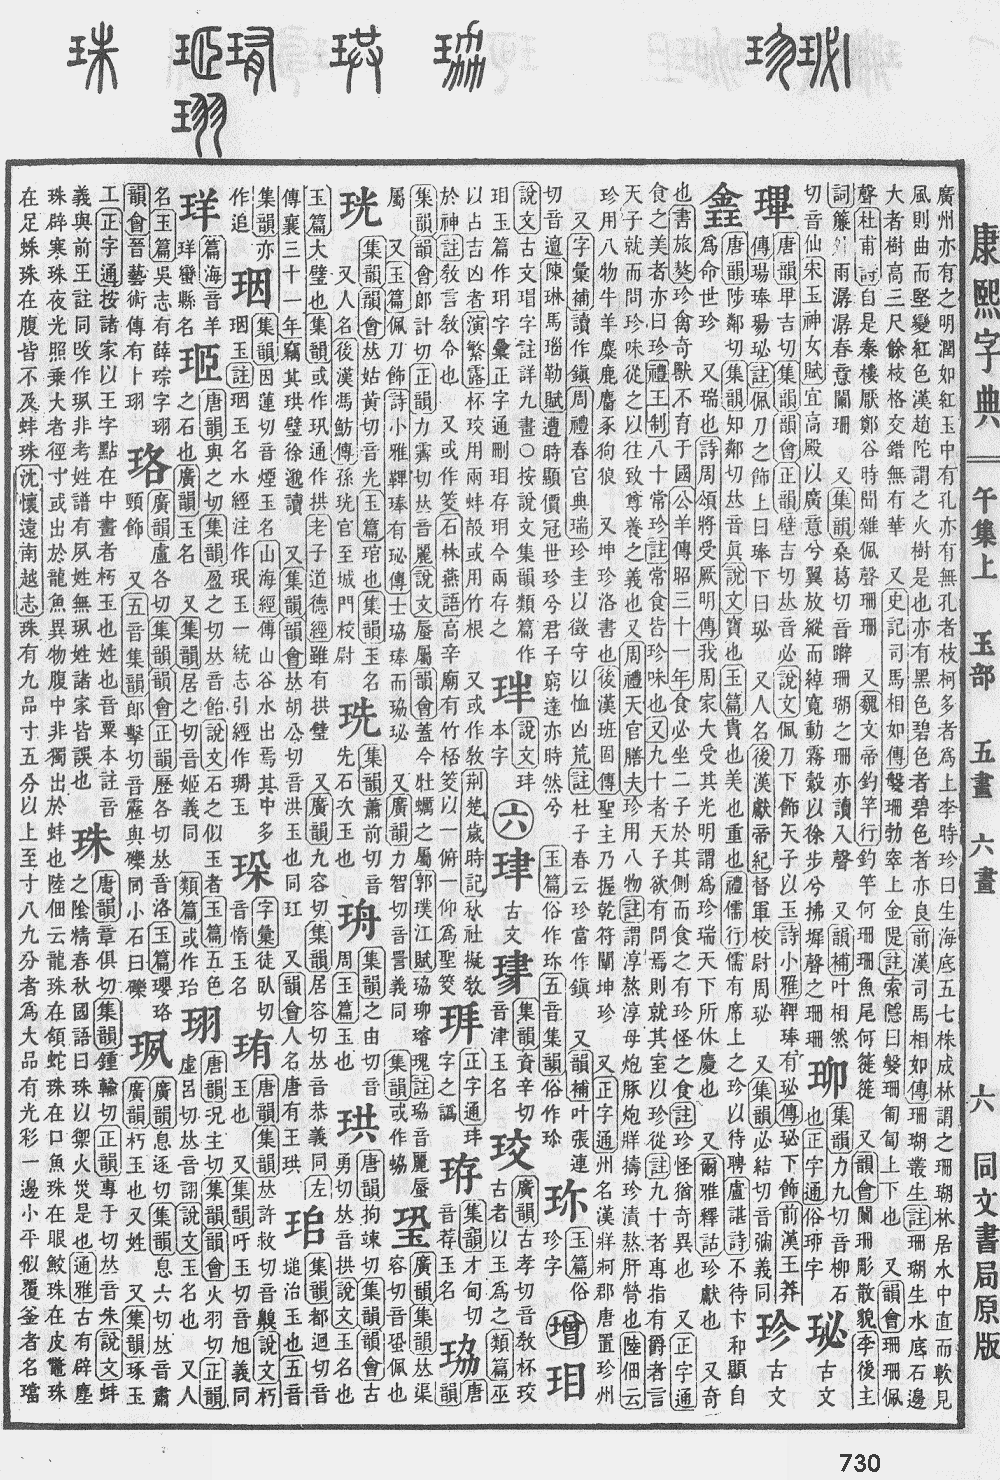 康熙字典 午集上 玉部 五畫 六畫 六 同文書局原版
廣州亦有之明潤如紅玉中有孔亦有無孔者枝柯多者為上李時珍曰生海底五七株成林謂之珊瑚林居水中直而軟見
風則曲而堅變紅色漢趙陀謂之火樹是也亦有黑色碧色者碧色者亦良前漢司馬相如傳珊瑚叢生註珊瑚生水底石邊
大者樹高三尺餘枝格交錯無有華 又史記司馬相如傳媻珊勃窣上金隄註索隱曰媻珊匍匐上下也 又韻會珊珊佩
聲杜甫詩自是秦樓厭鄭谷時聞雜佩聲珊珊 又魏文帝釣竿行釣竿何珊珊魚尾何簁簁 又韻會闌珊彫散貌李後主
詞簾外雨潺潺春意闌珊 又集韻桑葛切音躠珊瑚之珊亦讀入聲 又韻補叶相然
切音仙宋玉神女賦宜高殿以廣意兮翼放縱而綽寬動霧縠以徐步兮拂墀聲之珊珊
珋 集韻力九切音柳石也正字通俗珋字
珌 古文㻫
唐韻畢吉切集韻韻會正韻壁吉切𠀤音必說文佩刀下飾天子以玉詩小雅鞞琫有珌傳珌下飾前漢王莽
傳瑒琫瑒珌註佩刀之飾上曰琫下曰珌 又人名後漢獻帝紀督軍校尉周珌 又集韻必結切音彌義同
珍 古文
唐韻陟鄰切集韻知鄰切𠀤音真說文寶也玉篇貴也美也重也禮儒行儒有席上之珍以待聘盧諶詩不待卞和顯自
為命世珍 又瑞也詩周頌將受厥明傳我周家大受其光明謂為珍瑞天下所休慶也 又爾雅釋詁珍獻也 又奇
也書旅獒珍禽奇獸不育于國公羊傳昭三十一年食必坐二子於其側而食之有珍怪之食註珍怪猶奇異也 又正字通
食之美者亦曰珍禮王制八十常珍註常食皆珍味也又九十者天子欲有問焉則就其室以珍從註九十者專指有爵者言
天子就而問珍味從之以往致尊養之義也又周禮天官膳夫珍用八物註謂淳熬淳母炮豚炮牂擣珍漬熬肝膋也陸佃云
珍用八物牛羊麋鹿麕豕狗狼 又坤珍洛書也後漢班固傳聖主乃握乾符闡坤珍 又正字通州名漢牂牁郡唐置珍州
又字彙補讀作鎮周禮春官典瑞珍圭以徵守以恤凶荒註杜子春云珍當作鎮 又韻補叶張連
切音邅陳琳馬瑙勒賦遭時顯價冠世珍兮君子窮達亦時然兮
玉篇俗作珎五音集韻俗作
珎 玉篇俗珍字
增
說文古文瑁字註詳九畫○按說文集韻類篇作
說文本字
六
珒 古文
集韻資辛切音津玉名
珓 廣韻古孝切音教杯珓古者以玉為之類篇巫
以占吉凶者演繁露杯珓用兩蚌殼或用竹根 又或作教荊楚歲時記秋社擬教
於神註教言教令也 又或作筊石林燕語高辛廟有竹桮筊以一俯一仰為聖筊
正字通字之譌
珔 集韻才甸切音荐玉名
珕 唐韻
集韻韻會郎計切正韻力霽切𠀤音麗說文蜃屬韻會蓋今牡蠣之屬郭璞江賦珕珋璿瑰註珕音麗蜃
屬 又玉篇佩刀飾詩小雅鞞琫有珌傳士珕琫而珕珌 又廣韻力智切音詈義同 集韻或作蛠
珖 集韻韻會𠀤姑黃切音光玉篇琯也集韻玉名 又人名後漢馮魴傳孫珖官至城門校尉
珗 集韻蕭前切音先石次玉也
珘 集韻之由切音周玉篇玉也
珙 唐韻拘竦切集韻韻會古勇切𠀤音拱說文玉名也
玉篇大璧也集韻或作㺬通作拱老子道德經雖有拱璧 又廣韻九容切集韻居容切𠀤音恭義同左
傳襄三十一年竊其拱璧徐邈讀 又集韻韻會𠀤胡公切音洪玉也同玒 又韻會人名唐有王珙
集韻都迴切音㙂治玉也五音
集韻亦作追
珚 集韻因蓮切音煙玉名山海經傳山谷水出焉其中多珚玉註珚玉名水經注作珉玉一統志引經作琱玉
字彙徒臥切音惰玉名
珛 唐韻集韻𠀤許救切音齅說文朽玉也 又集韻吁玉切音旭義同
珜 篇海音羊羊蠻縣名
唐韻與之切集韻盈之切𠀤音飴說文石之似玉者玉篇五色之石也廣韻玉名 又集韻居之切音姬義同 類篇或作珆
珝 唐韻況主切集韻韻會火羽切正韻虛呂切𠀤音詡說文玉名也 又人
名玉篇吳志有薛綜字珝
珞 廣韻盧各切集韻韻會正韻歷各切𠀤音洛玉篇瓔珞頸飾 又五音集韻郎擊切音靂與礫同小石曰礫
韻會晉藝術傳有卜珝
珟
廣韻息逐切集韻息六切𠀤音肅廣韻朽玉也又姓 又集韻琢玉
工正字通按諸家以王字點在中畫者朽玉也姓也音粟本註音
義與前王註同攺作㺷非考姓譜有夙姓無㺷姓諸家皆誤也
珠 唐韻章俱切集韻鍾輸切正韻專于切𠀤音朱說文蚌之陰精春秋國語曰珠以禦火災是也通雅古有辟塵
珠辟寒珠夜光照乘大者徑寸或出於龍魚異物腹中非獨出於蚌也陸佃云龍珠在頷蛇珠在口魚珠在眼鮫珠在皮鼈珠
在足蛛珠在腹皆不及蚌珠沈懷遠南越志珠有九品寸五分以上至寸八九分者為大品有光彩一邊小平似覆釜者名璫
730